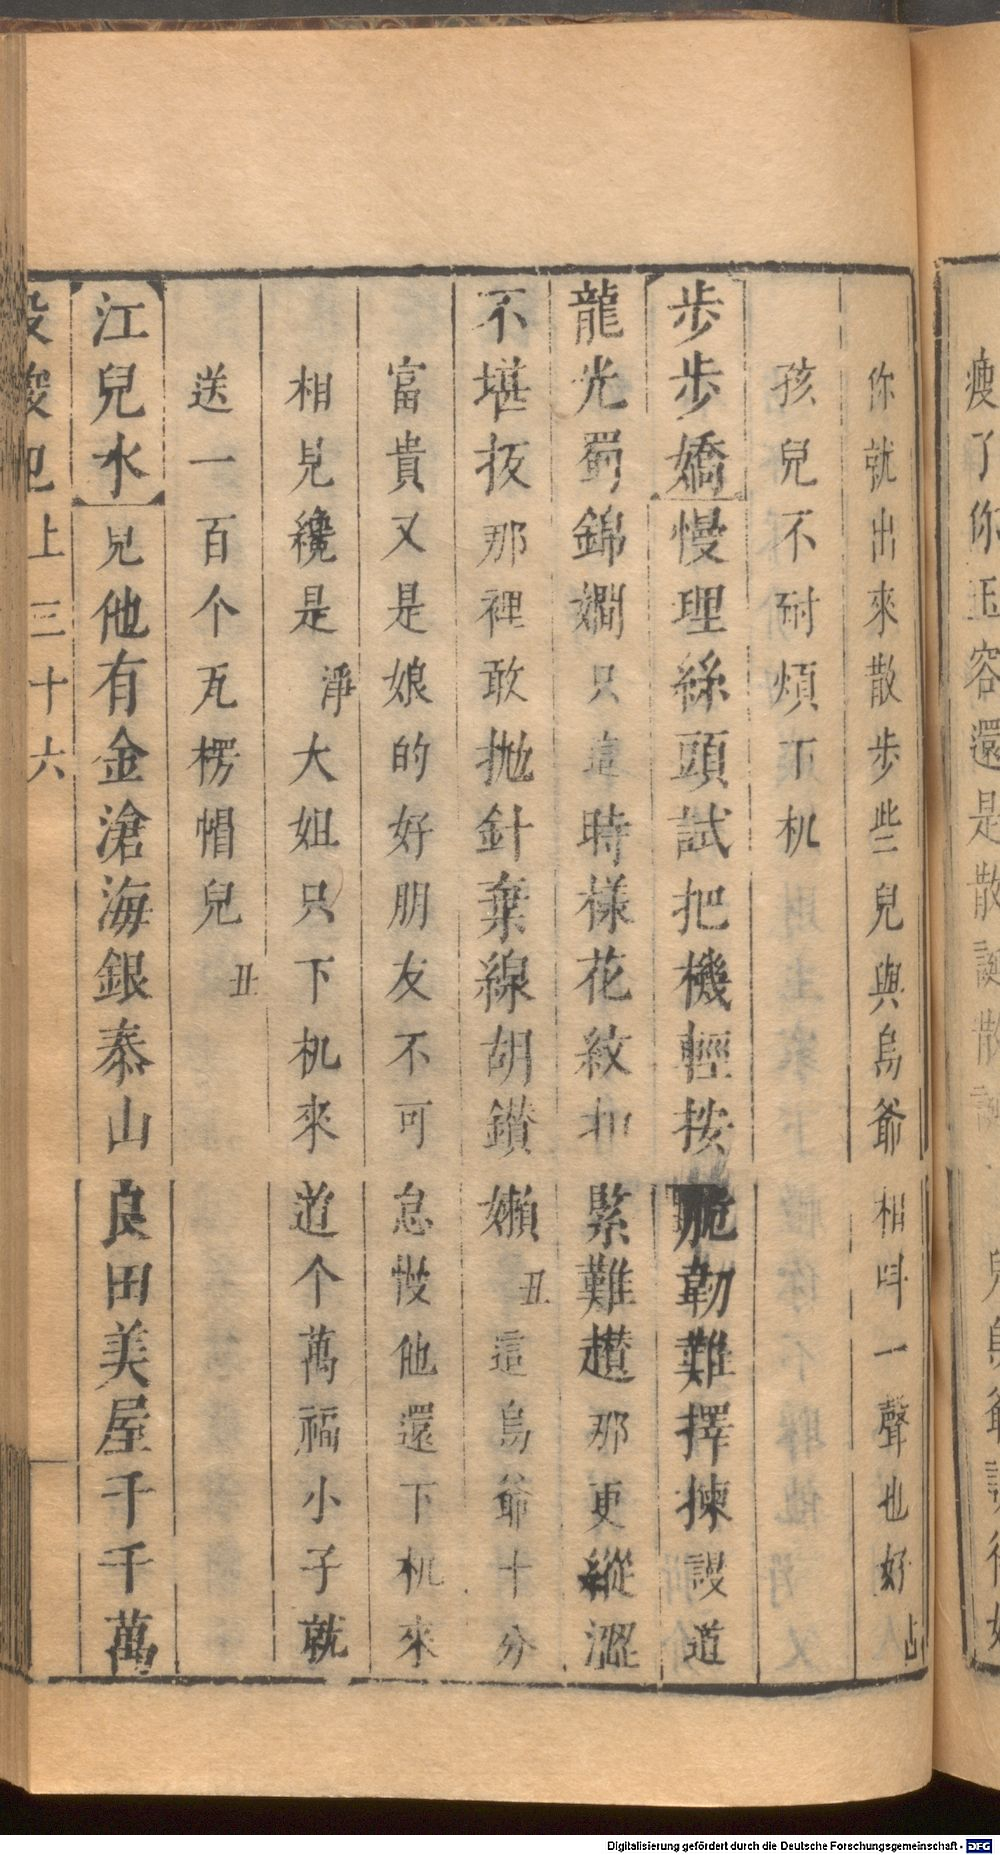 瘦了你玉容還是散誕散誕
你就出來散步些兒與烏爺相叫一聲也好占
孩兒不耐煩下机
步步嬌慢理絲頭試把機輕按脆韌難擇揀謾道
龍光蜀錦嫺只這時樣花紋扣緊難趲那更縱澀
不堪扳那裡敢拋針棄線胡鑽嬾丑這烏爺十分
富貴又是娘的好朋友不可怠慢他還下机來
相見纔是淨大姐只下机來道个萬福小子就
送一百个瓦楞帽兒丑
江兒水見他有金滄海銀泰山良田美屋千千萬
上三十六
Digitalisierung gefördert durch die Deutsche Forschungsgemeinschaft - DFG